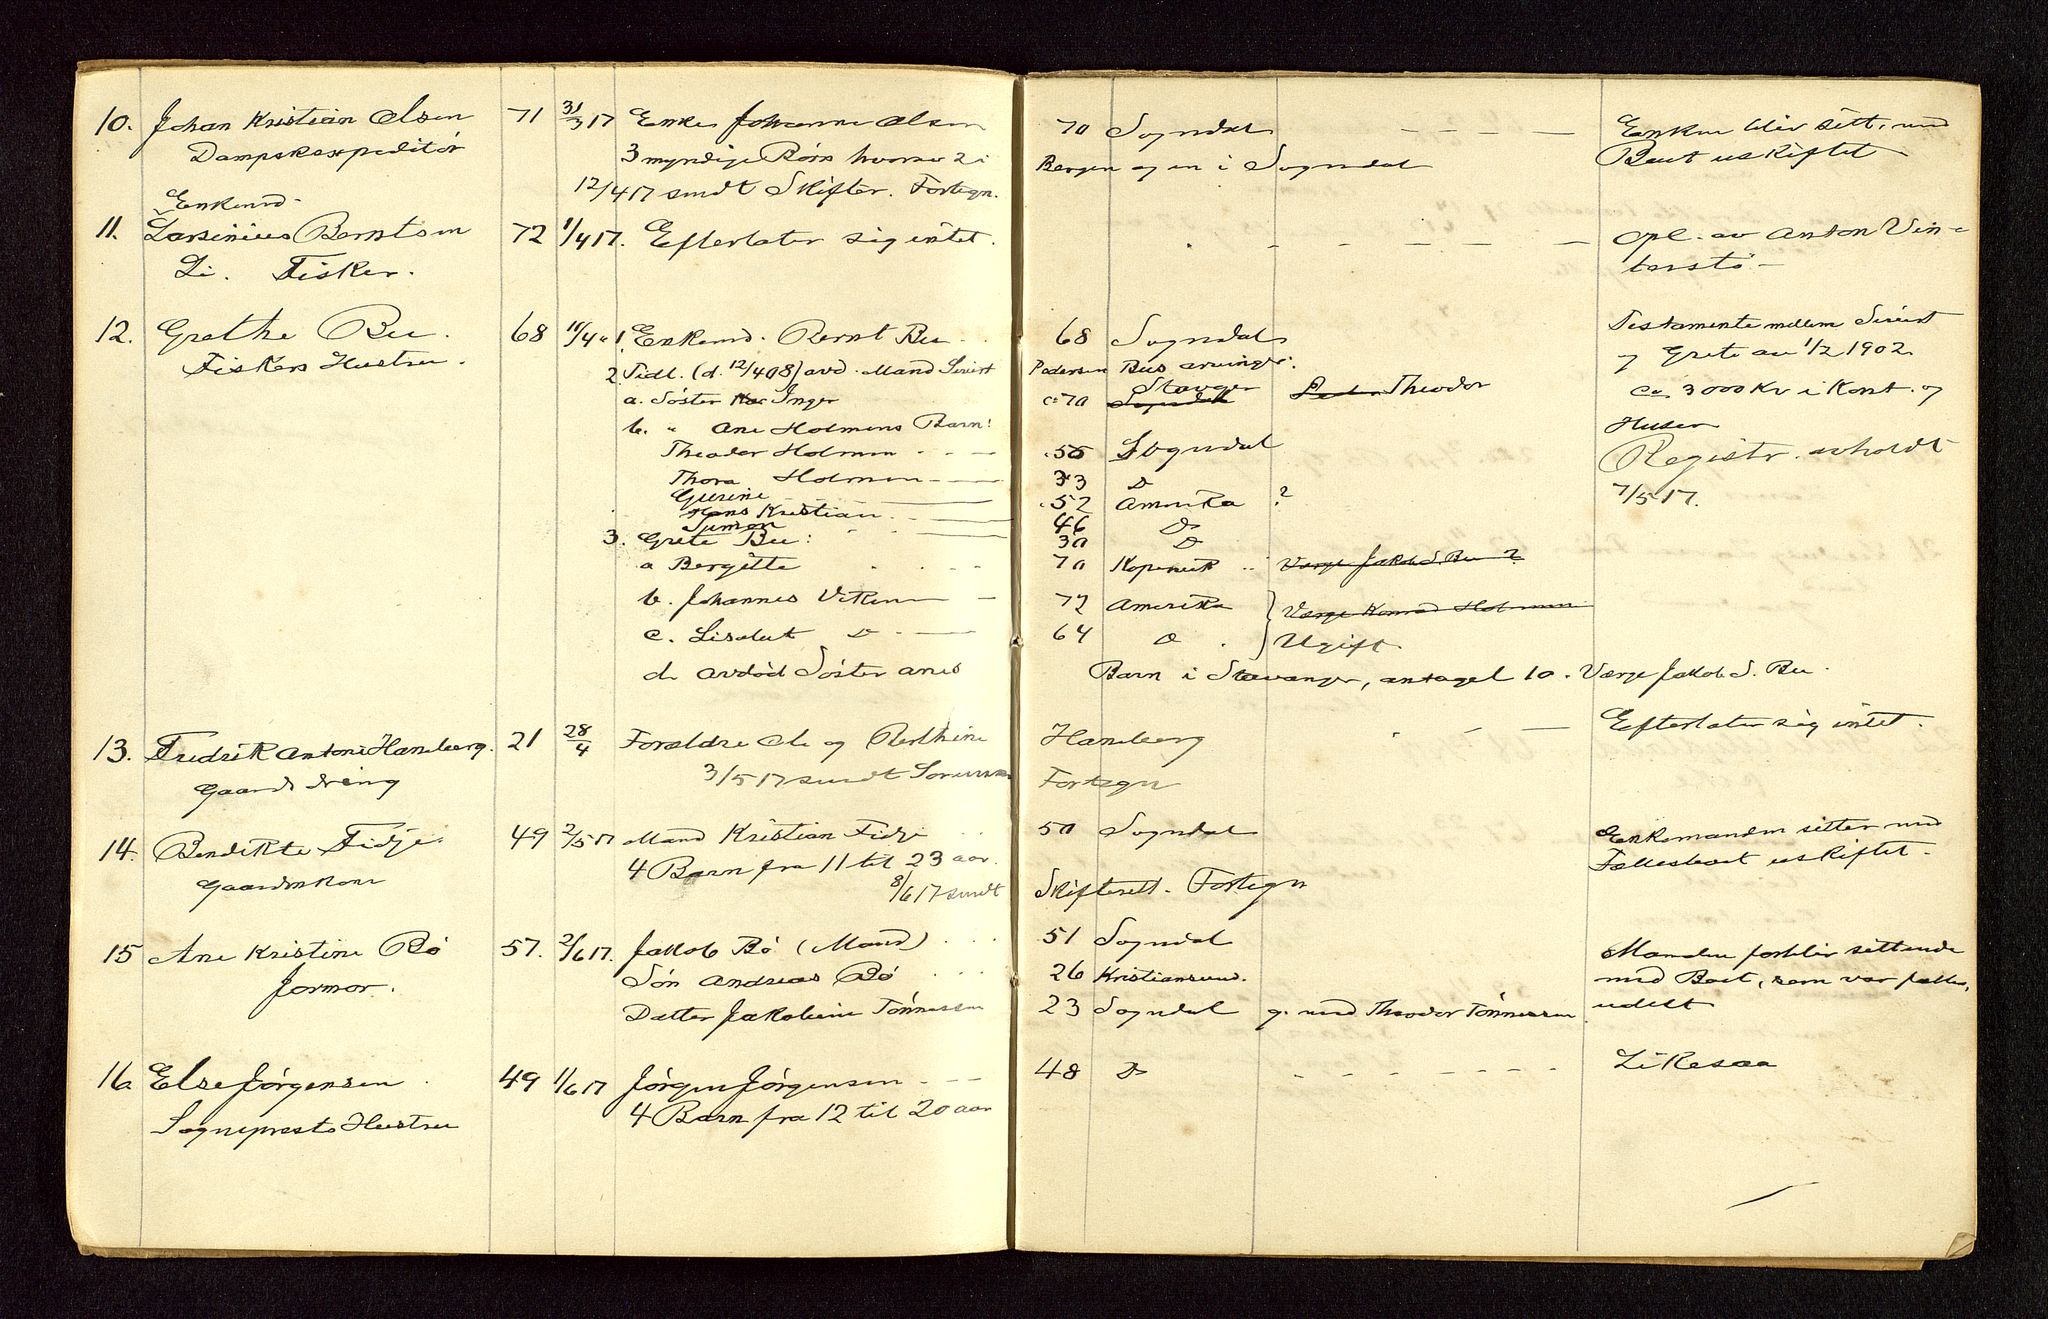 10. Johan Kristian Olsen 71 31/3 17 Enke Johanne Olsen 70 Sogndal Enken blir sitt. med
Dampskexpeditör 3 myndige Börn hvorav 2 i Bergen og en i Sogndal Boet uskiftet
12/4 17 sendt Skifter. Fortegn.
Enkemd.
11. Larsinius Berntsen 72 1/4 17. Efterlater sig intet. Opl. av Anton Vin-
Li. Fisker. terstö
12. Grethe Bu. 68 11/4 " 1. Enkemd. Bernt Bu 68 Sogndal Testamente mellem Sivert
Fiskers Hustru. 2. Tidl. (d. 12/4 08) avd. Mand Sivert Pedersen Bus arvinger: og Grete av 1/2 1902
a. Söster Inger c: 70 Stavger Sogndal Theodor ca 3000 Kr i Kont. og
b. " Ane Holmens Barn: Huser
Theodor Holmen 55 Sogndal Registr. avholdt
Thora Holmen 33 D 7/5 17.
Gurine 52 Amerika ?
Hans Kristian 46 D
Simon 30 D
3. Grete Bu:
a Bergitte 70 Kopervik Værge Jakob S. Bu ?
b. Johannes Viken 72 Amerika Værge Konrad Holmen
c. Lisabet D 64 D Ugift
d. avdöd Söster Anes Barn i Stavanger, antagel 10. Værge Jakob S. Bu.
13. Fredrik Antoni Haneberg. 21 28/4 Forældre Ole og Berthine Haneberg Efterlater sig intet.
Gaardsdreng 3/5 17 sendt Sorenskr Fortegn
14. Bendikte Fidje. 49 2/5 17 Mand Kristian Fidje 50 Sogndal Enkemanden sitter med
Gaardmkone 4 Barn fra 11 til 23 aar. Fællesboet uskiftet.
8/6 17 sendt Skifterett. Fortegn
15 Ane Kristine Bö 57. 2/6 17. Jakob Bö (Mand) 51 Sogndal Manden forblir sittende
Jormor. Sön Andreas Bö 26 Kristiansund. med Boet, som var fælles,
Datter Jakobine Tönnessen 23 Sogndal g. med Theodor Tönnessen udelt
16. Else Jörgensen 49 1/6 17 Jörgen Jörgensen 48 D Likesaa
Sogneprests Hustru 4 Barn fra 12 til 20 aar